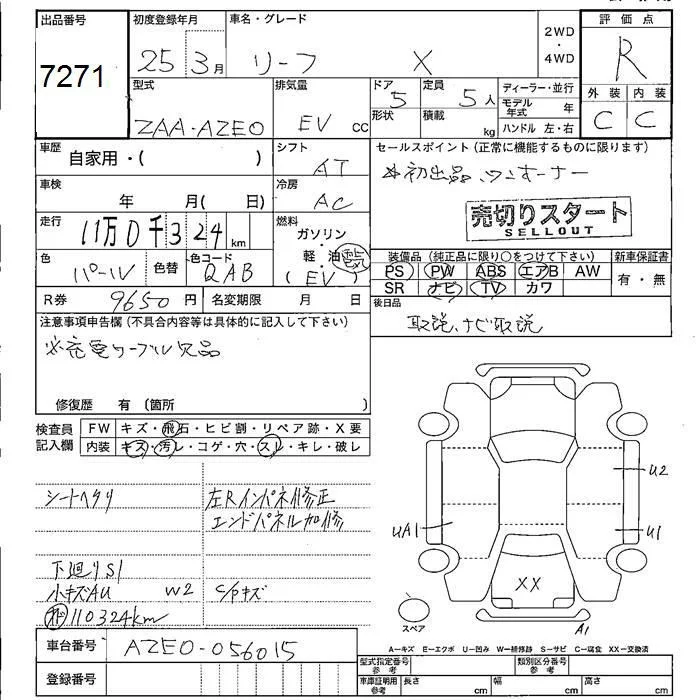 出品番号 初度登録年月 車名・グレード 2WD ・ 4WD 評価点
7271 25 3月 リーフ X R
型式 排気量 ドア 5 定員 5人 ディーラー・並行 外装 内装
ZAA-AZE0 EV cc 形状 積載 kg モデル年式 年 C C
ハンドル 左・右
車歴 自家用・( ) シフト AT セールスポイント (正常に機能するものに限ります)
車検 年 月( 日) 冷房 AC ※初出品、ワンオーナー
走行 11万0千324km 燃料 ガソリン・軽油 電気 (EV) 売切りスタート
SELLOUT
色 パール 色替 色コード QAB 装備品 (純正品に限り○をつけて下さい) 新車保証書
PS PW ABS エアB AW 有・無
SR ナビ TV カワ
R券 9650円 名変期限 月 日 後日品
注意事項申告欄 (不具合内容等は具体的に記入して下さい) 取説、ナビ取説
※充電ケーブル欠品
修復歴 有 (箇所 )
検査員記入欄 FW キズ・飛石・ヒビ割・リペア跡・X要
内装 キズ・汚レ・コゲ・穴・スレ・キレ・破レ
シートヘタリ 左Rインパネ修正
エンドパネル加修
下廻りS1
小キズAU W2 C/Pキズ
110324km
U2
UA1 U1
XX
スペア A1
車台番号 AZE0-056015
A−キズ E−エクボ U−凹み W−補修跡 S−サビ C−腐食 XX−交換済
登録番号 型式指定番号 参考 類別区分番号 参考
車庫証明用 参考 長さ cm 幅 cm 高さ cm